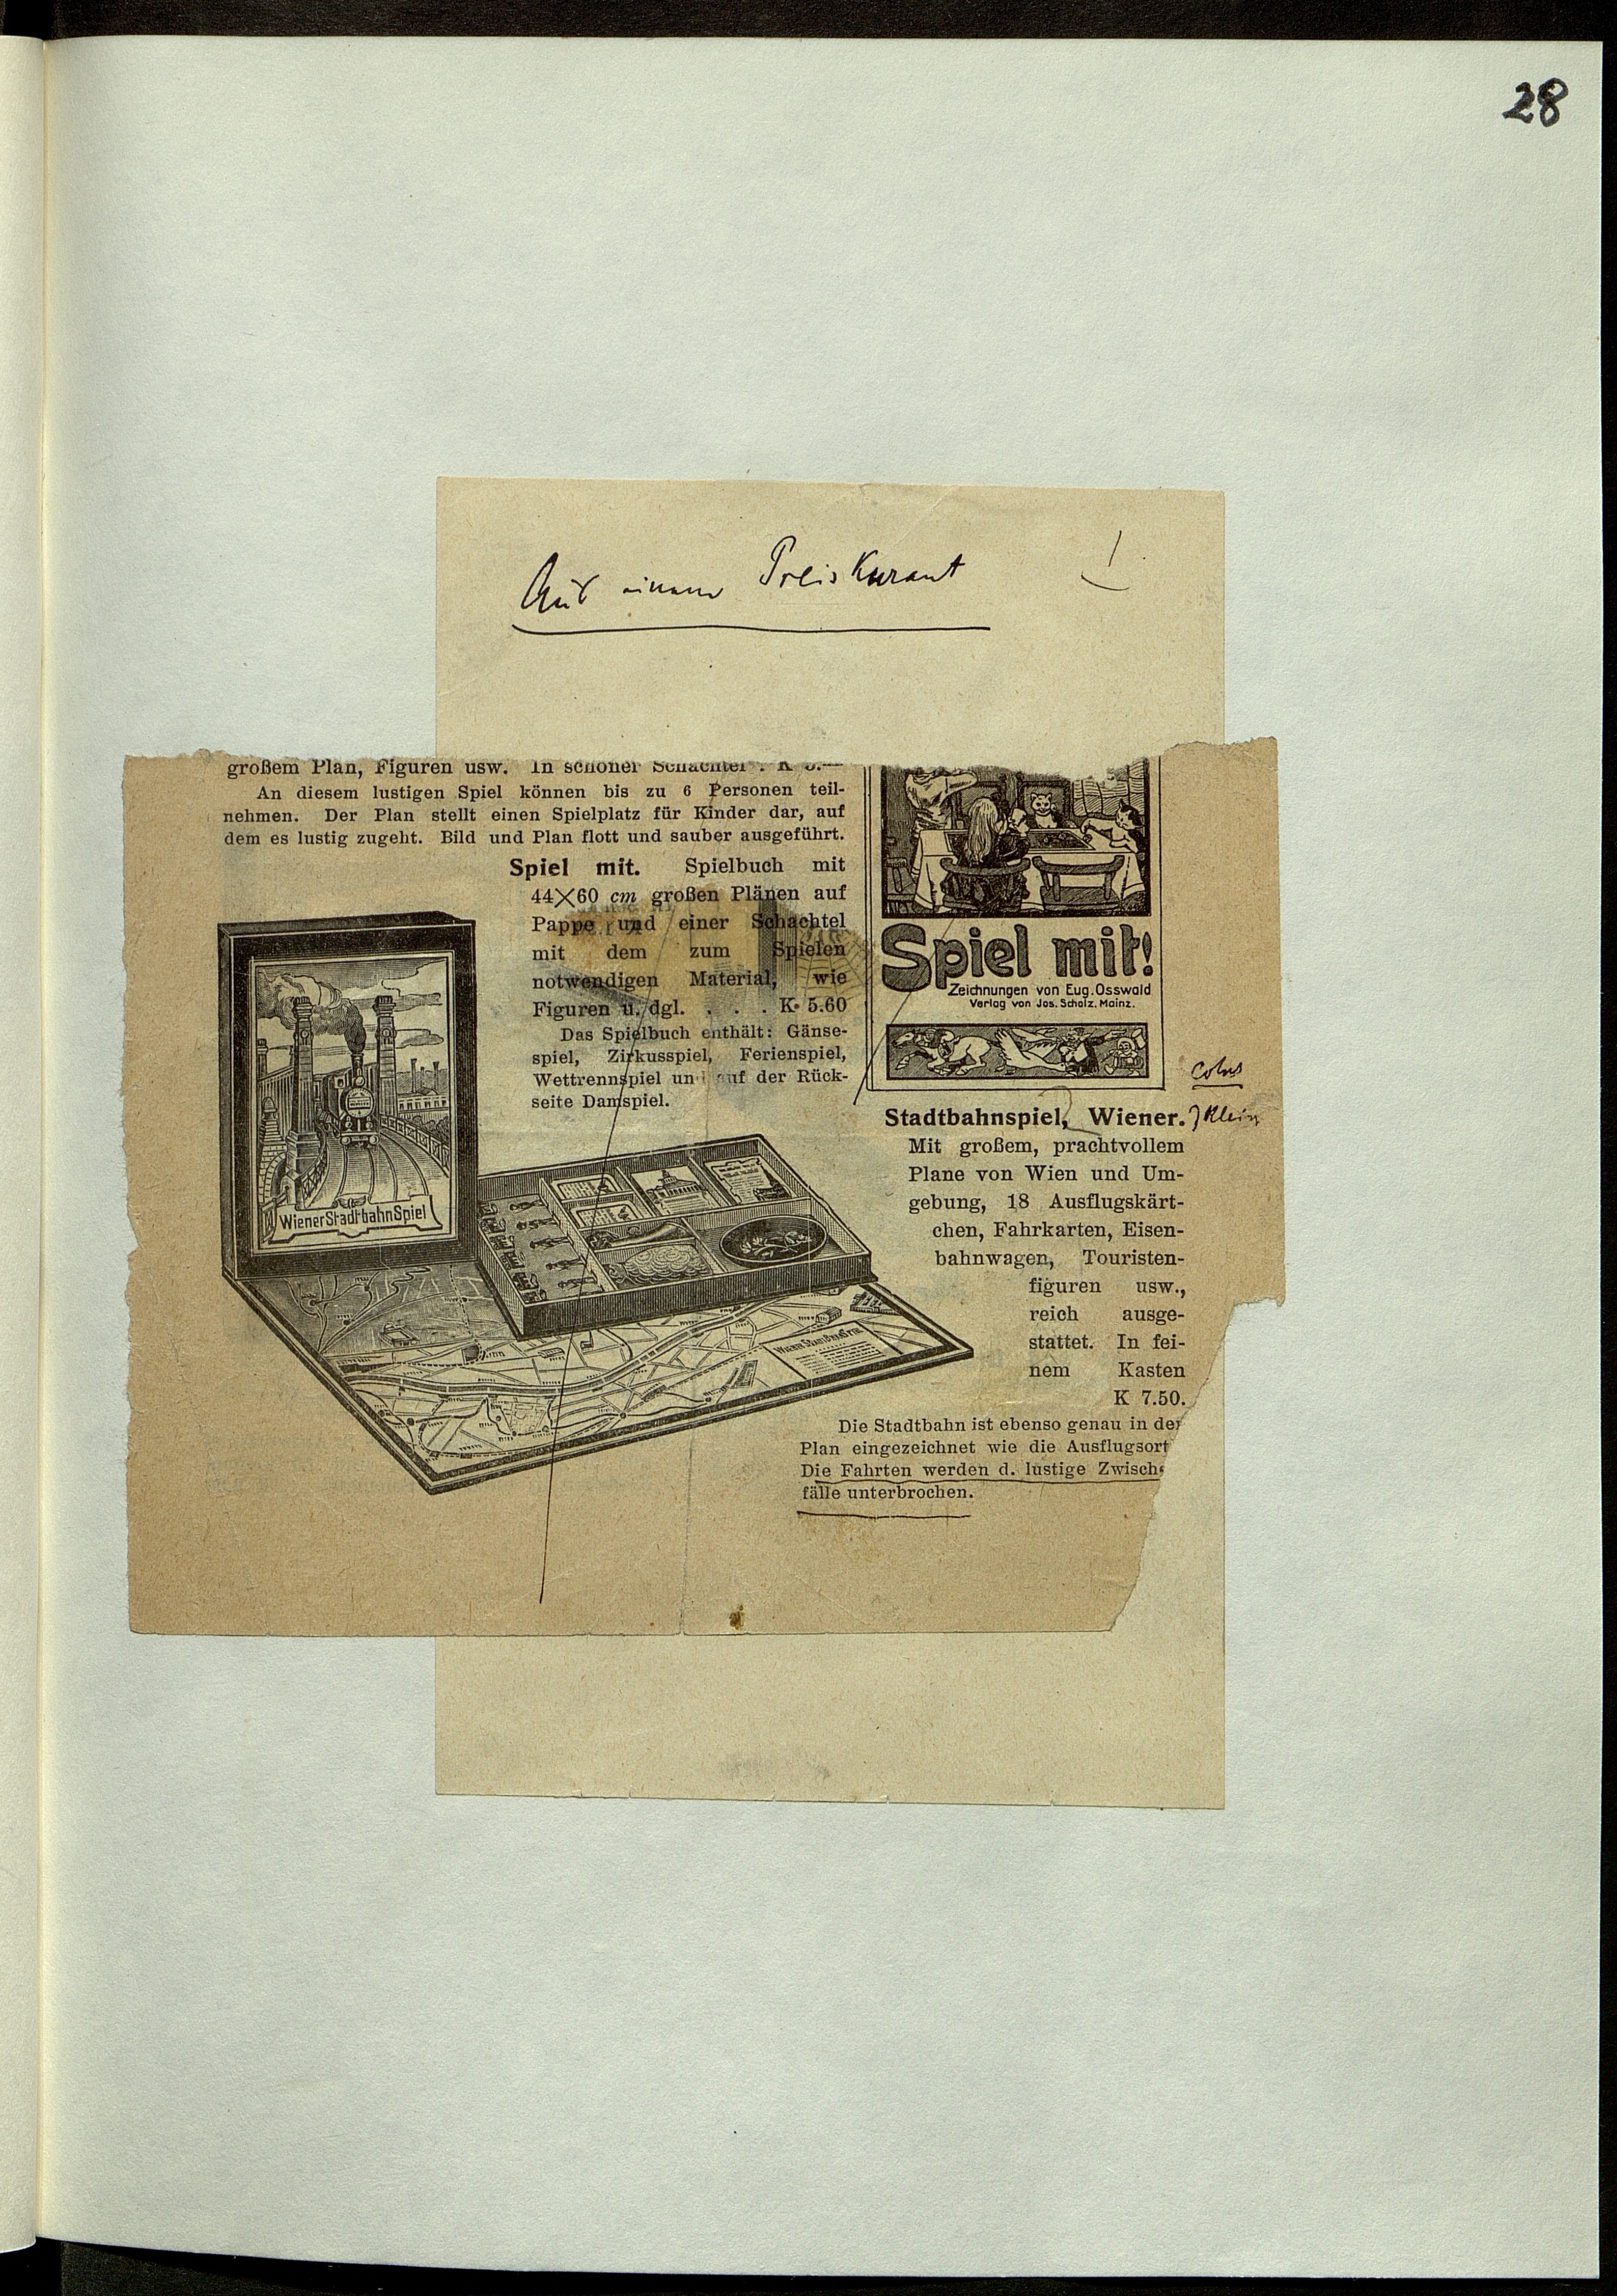 28
Aus einem Preiskurant !
großem Plan, Figuren usw. In schöner Schachtel . K
An diesem lustigen Spiel können bis zu 6 Personen teil-
nehmen. Der Plan stellt einen Spielplatz für Kinder dar, auf
dem es lustig zugeht. Bild und Plan flott und sauber ausgeführt.
Spiel mit. Spielbuch mit
44×60 cm großen Plänen auf
Pappe und einer Schachtel
mit dem zum Spielen
notwendigen Material, wie
Figuren u. dgl. . . . K 5.60
Das Spielbuch enthält: Gänse-
spiel, Zirkusspiel, Ferienspiel,
Wettrennspiel un auf der Rück-
seite Damspiel.
Spiel mit!
Zeichnungen von Eug. Osswald
Verlag von Jos. Scholz, Mainz.
Wiener Stadtbahn Spiel
Stadtbahnspiel, Wiener. Klein
Mit großem, prachtvollem
Plane von Wien und Um-
gebung, 18 Ausflugskärt-
chen, Fahrkarten, Eisen-
bahnwagen, Touristen-
figuren usw.,
reich ausge-
stattet. In fei-
nem Kasten
K 7.50.
Wiener Stadtbahn Spiel
Die Stadtbahn ist ebenso genau in de
Plan eingezeichnet wie die Ausflugsort
Die Fahrten werden d. lustige Zwisch
fälle unterbrochen.